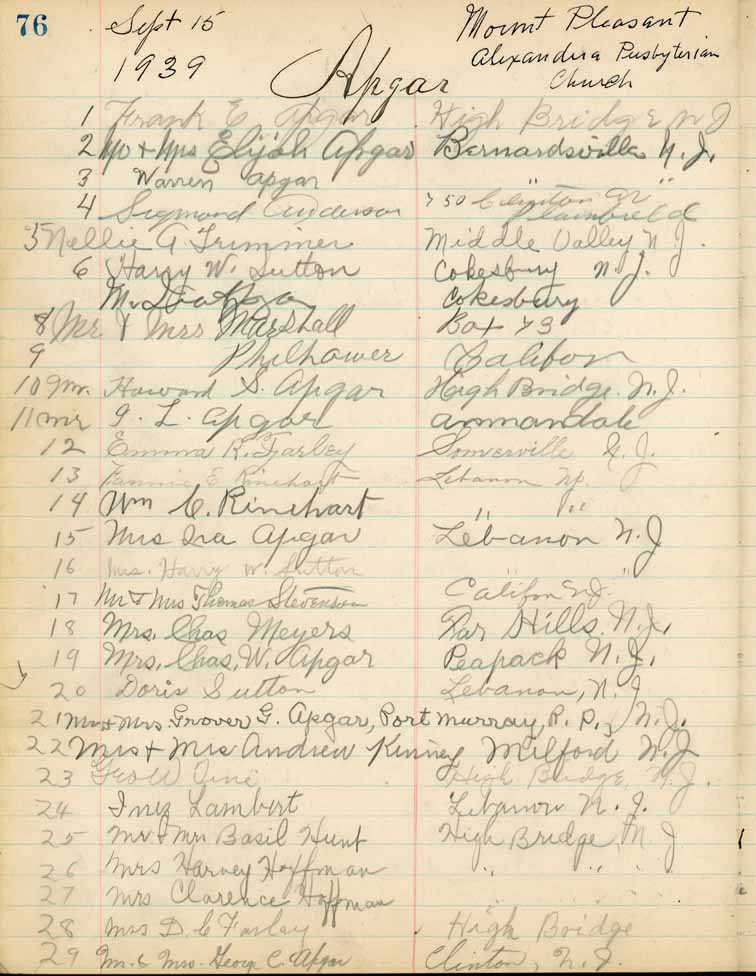 76 Sept 15 Mount Pleasant
1939 Apgar Alexandria Presbyterian
Church
1 Frank E Apgar High Bridge N J
2 Mr & Mrs Elijah Apgar Bernardsville N. J.
3 Warren Apgar " "
4 Sigmond Anderson 750 Clinton Av
Plainfield
5 Nellie A Trimmer Middle Valley N J.
6 Harry W. Sutton Cokesbury N. J.
M. Cokesbury
8 Mr & Mrs Marshall Box 73
9 Philhower Califon
10 Mr. Howard S. Apgar High Bridge. N. J.
11 Mr I. L. Apgar Annandale
12 Emma R. Farley Somerville N. J.
13 Fannie E Rinehart Lebanon NJ.
14 Wm C. Rinehart " "
15 Mrs Ira Apgar Lebanon N. J
16 Mrs. Harry W. Sutton " "
17 Mr & Mrs Thomas Stevenson Califon N.J.
18 Mrs. Chas Meyers Far Hills. N. J.,
19 Mrs. Chas. W. Apgar Peapack N. J.
20 Doris Sutton Lebanon, N. J
21 Mr & Mrs Grover G. Apgar, Port Murray, R. D., N. J.
22 Mrs & Mrs Andrew Kinney Milford N. J
23 Geo W High Bridge, N. J.
24 Inez Lambert Lebanon N. J.
25 Mr & Mrs Basil Hunt High Bridge N J
26 Mrs Harvey Hoffman " " "
27 Mrs Clarence Hoffman " "
28 Mrs D. C Farley High Bridge
29 Mr. & Mrs. George C. Apgar Clinton, N. J.